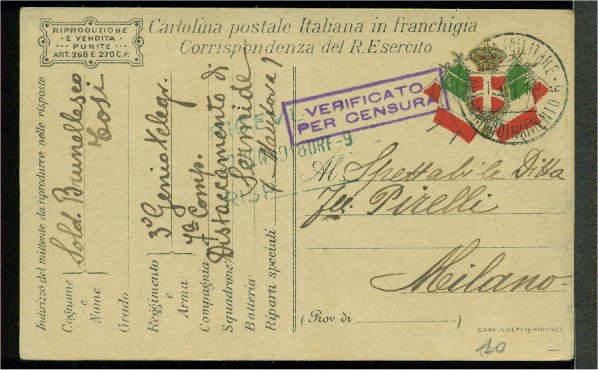 RIPRODUZIONE
E VENDITA
PUNITE
ART. 268 E 270 C.P.
Cartolina postale Italiana in franchigia
Corrispondenza del R. Esercito
VERIFICATO
PER CENSURA
MILITARE
Al Spettabile Ditta
Pirelli
Milano
(Prov. di )
CART. VOLPINI-FIRENZE
10
Indirizzo del mittente da riprodurre nelle risposte
Cognome e Nome Sold. Brunellesco Tosi
Grado
Reggimento e Arma 3º Genio Telegr.
Compagnia 7ª Comp.
Squadrone Distaccamento di
Batteria Sermide
Riparti speciali (Mantova)